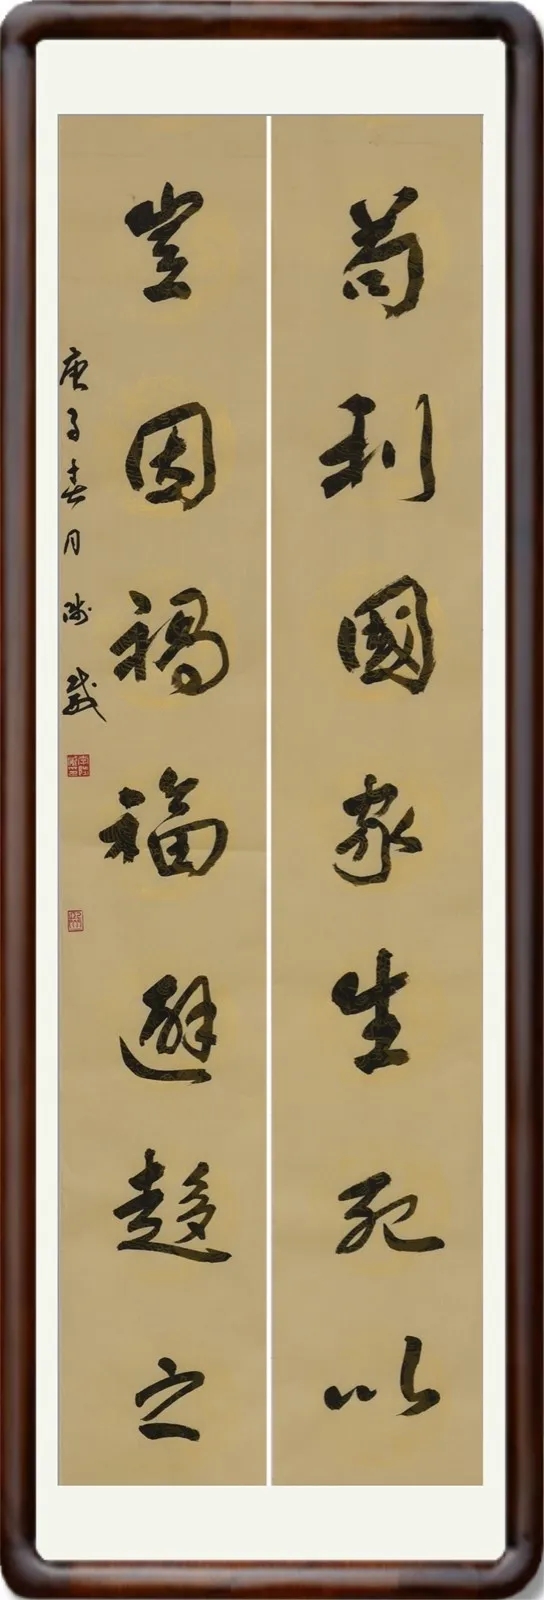 苟利國家生死以
豈因禍福避趋之
庚子春月